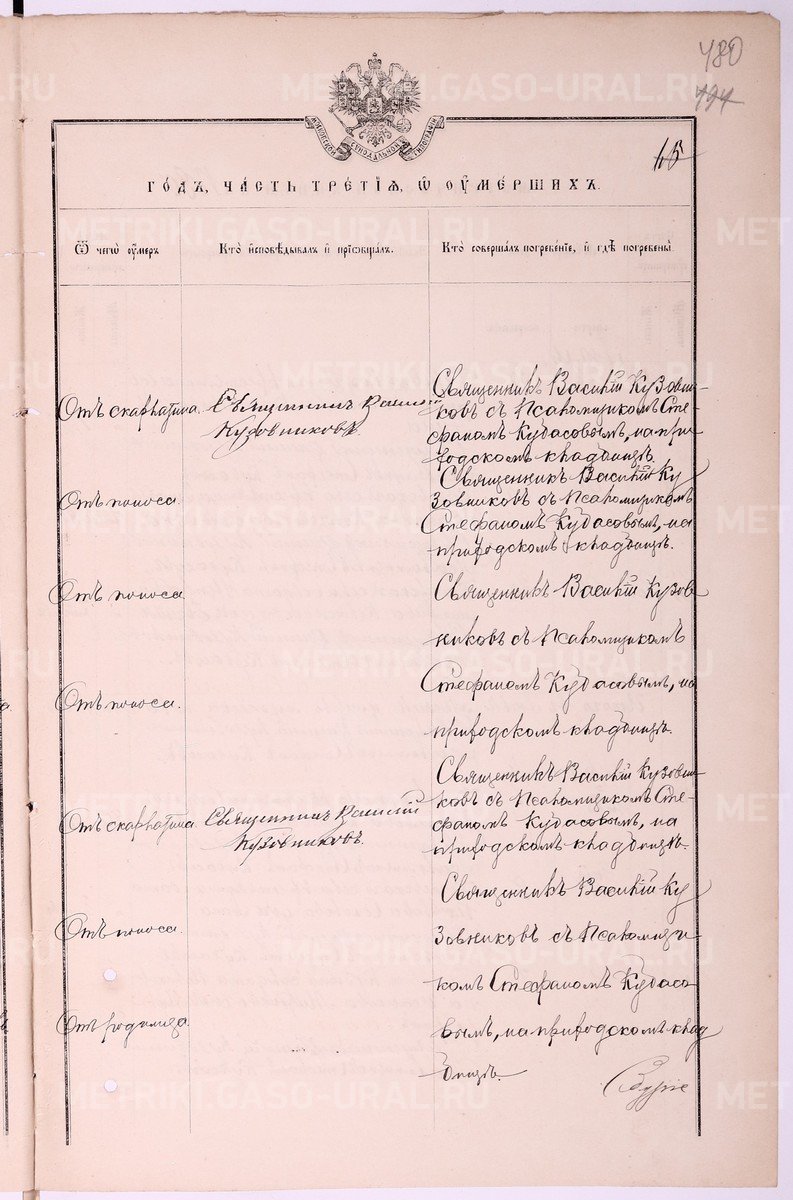 480
494
МОСКОВСКОЙ СѴНОДАЛЬНОЙ ТИПОГРАФІИ
15
ГОДЪ, ЧАСТЬ ТРЕТІЯ, Ѿ ОУМЕРШИХЪ.
Ѿ чегѡ оумеръ
Кто исповѣдывалъ и прїобщалъ.
Кто совершалъ погребенїе, и гдѣ погребены.
Отъ скарлатина.
Священникъ Василій
Кузовниковъ.
Священникъ Василій Кузовни-
ковъ съ Псаломщикомъ Сте-
фаномъ Кубасовымъ, на при-
ходскомъ кладбищѣ.
Отъ поноса.
Священникъ Василій Ку
зовниковъ съ Псаломщикомъ
Стефаномъ Кубасовымъ, на
приходскомъ кладбищѣ.
Отъ поноса
Священникъ Василій Кузов
никовъ съ Псаломщикомъ
Отъ поноса.
Стефаномъ Кубасовымъ, на
приходскомъ кладбищѣ.
Отъ скарлатина.
Священникъ Василій
Кузовниковъ.
Священникъ Василій Кузовни-
ковъ съ Псаломщикомъ Сте-
фаномъ Кубасовымъ, на
приходскомъ кладбищѣ.
Отъ поноса.
Священникъ Василій Ку
зовниковъ съ Псаломщи-
комъ Стефаномъ Кубасо
Отъ родимца.
вымъ, на приходскомъ клад
бищѣ.
METRIKI.GASO-URAL.RU